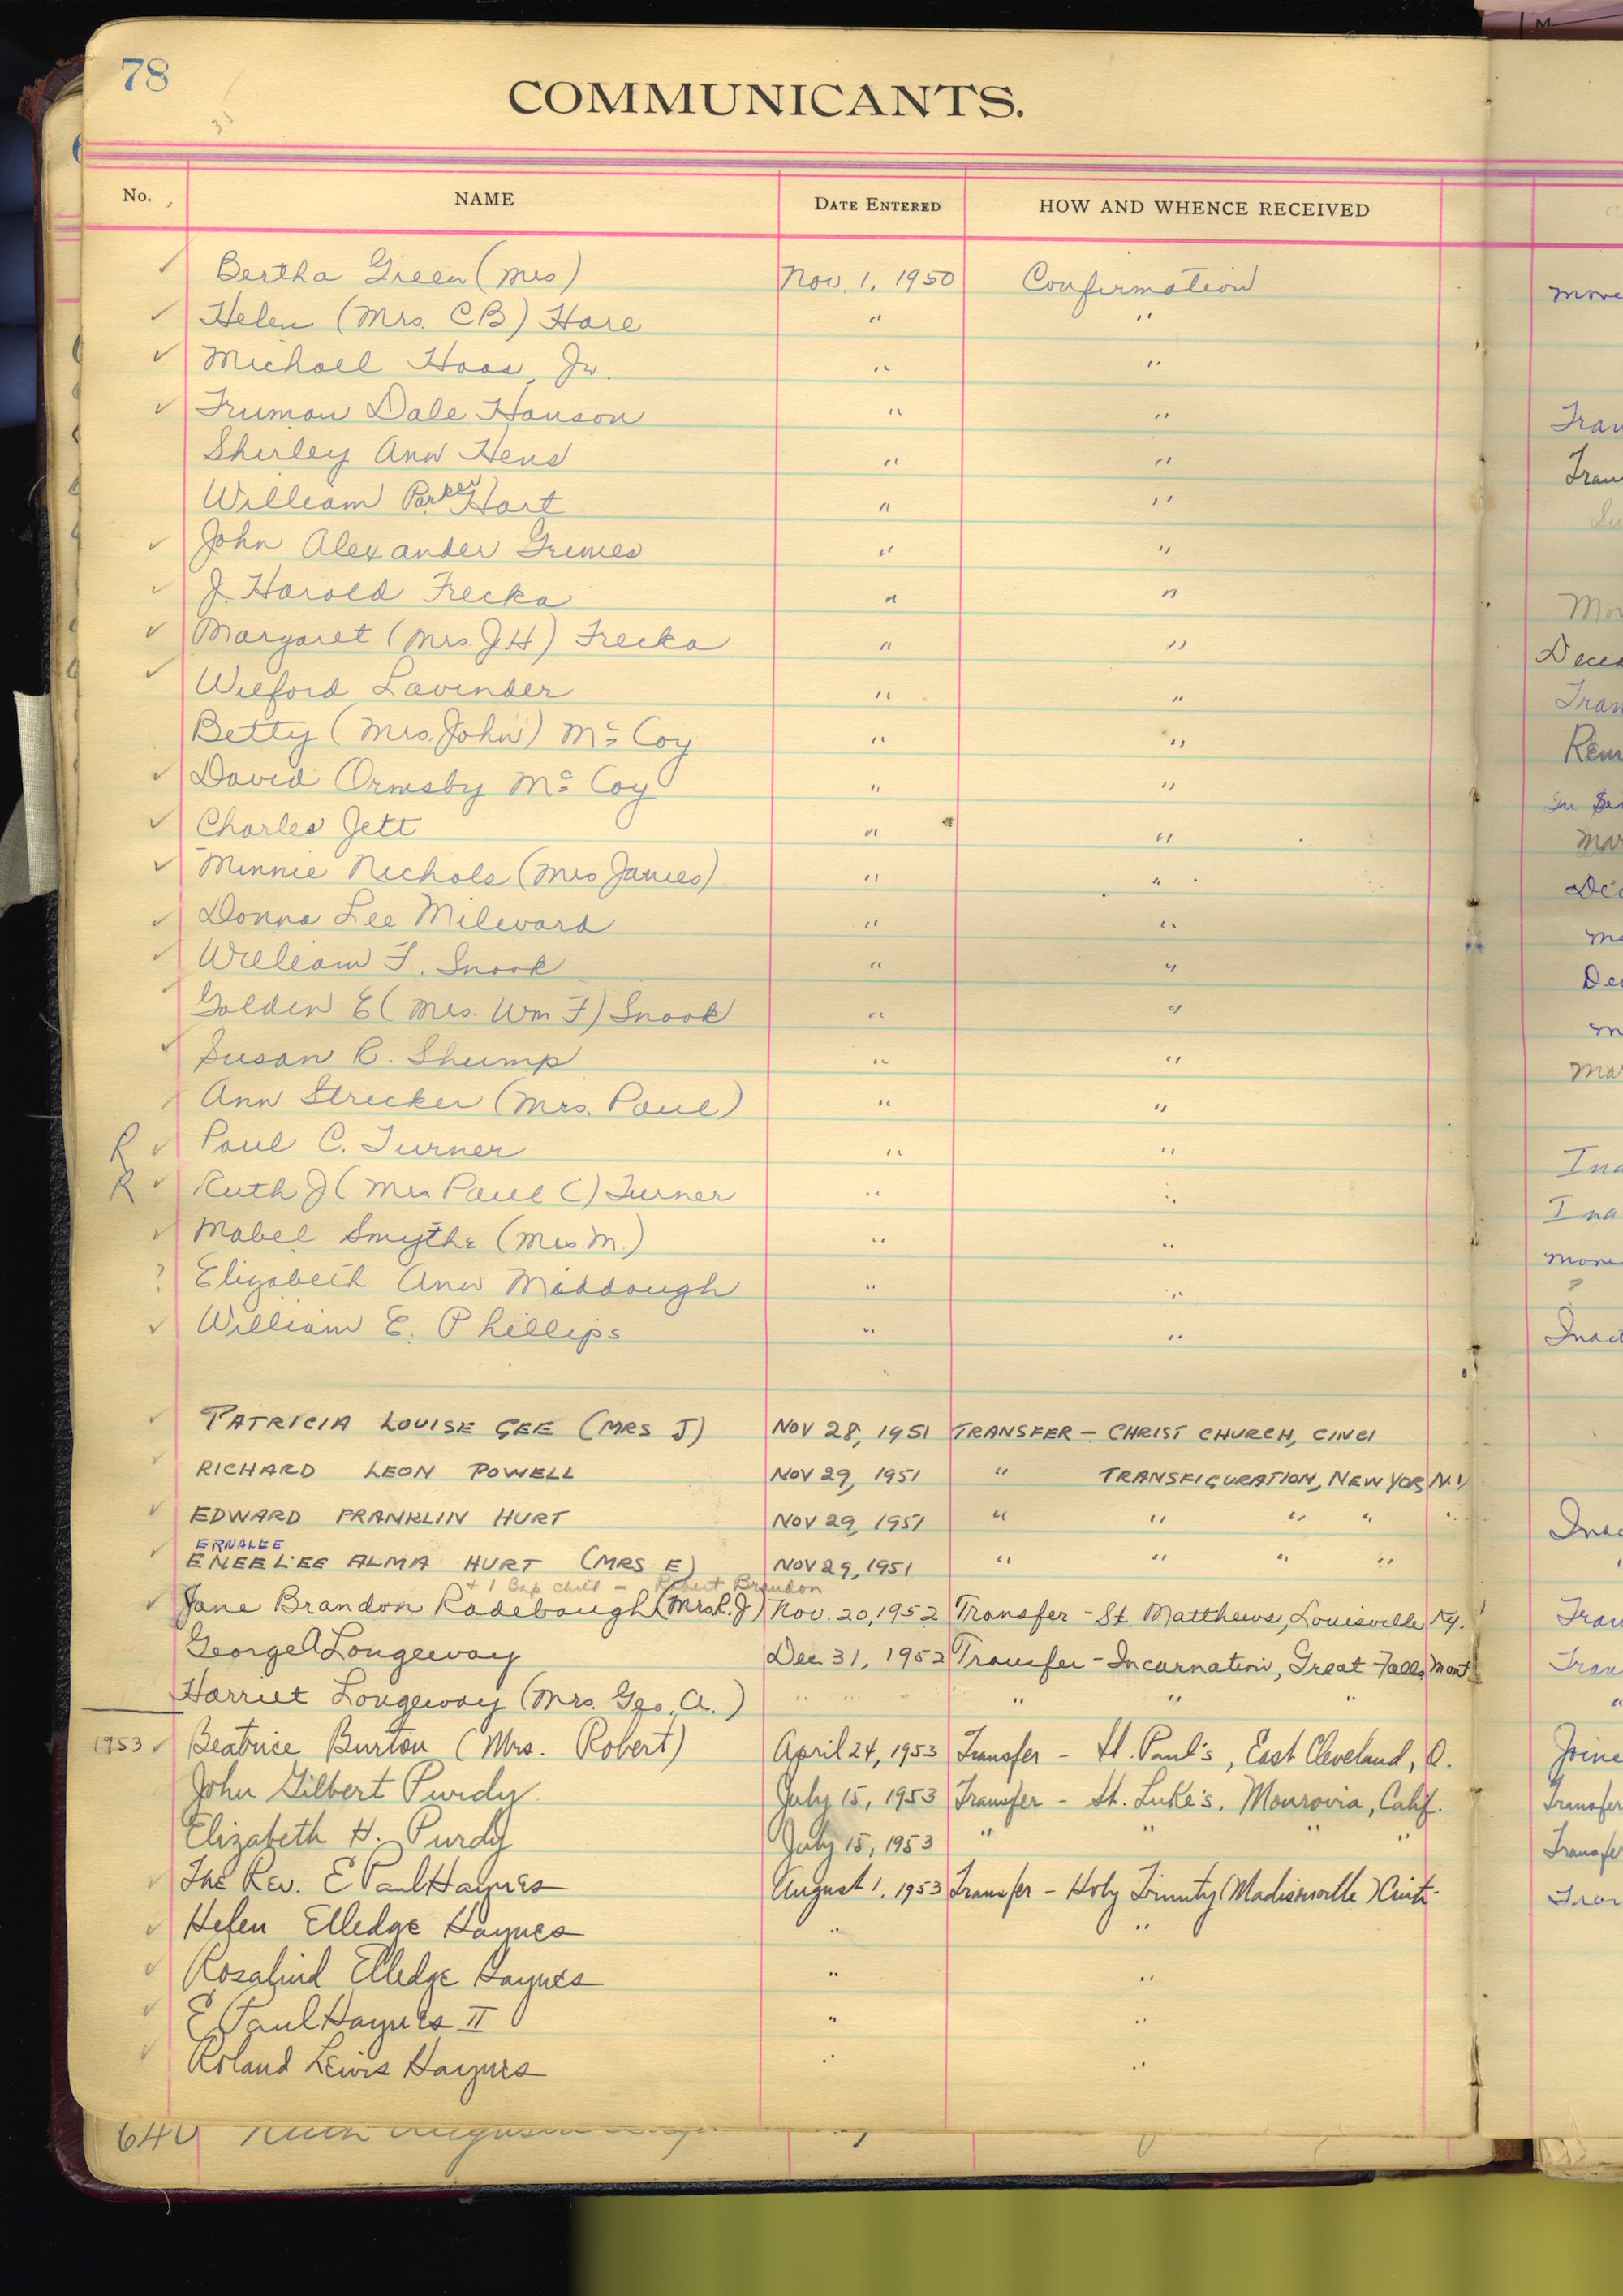 78
COMMUNICANTS.
No. NAME DATE ENTERED HOW AND WHENCE RECEIVED
✓ Bertha Green (Mrs) Nov. 1, 1950 Confirmation
✓ Helen (Mrs. CB) Hare " "
✓ Michael Haas, Jr. " "
✓ Truman Dale Hanson " "
Shirley Ann Hens " "
William Parker Hart " "
✓ John Alexander Grimes " "
✓ J. Harold Frecka " "
✓ Margaret (Mrs. J.H) Frecka " "
✓ Wilford Lavinder " "
Betty (Mrs. John) Mc Coy " "
✓ David Ormsby Mc Coy " "
✓ Charles Jett " "
✓ Minnie Nichols (Mrs James) " "
✓ Donna Lee Milward " "
✓ William F. Snook " "
✓ Golden E (Mrs. Wm F) Snook " "
✓ Susan R. Shump " "
✓ Ann Strecker (Mrs. Paul) " "
R ✓ Paul C. Turner " "
R ✓ Ruth J (Mrs Paul C) Turner " "
✓ Mabel Smythe (Mrs. M.) " "
? Elizabeth Ann Maddough " "
✓ William E. Phillips " "
✓ PATRICIA LOUISE GEE (MRS J) NOV 28, 1951 TRANSFER - CHRIST CHURCH, CINCI
✓ RICHARD LEON POWELL NOV 29, 1951 " TRANSFIGURATION, NEW YOR N.Y
✓ EDWARD FRANKLIN HURT NOV 29, 1951 " " " " "
ERNALEE
✓ ENEELEE ALMA HURT (MRS E) NOV 29, 1951 " " " "
+ 1 Bap child - Robert Brandon
✓ Jane Brandon Radebaugh (Mrs R.J) Nov. 20, 1952 Transfer - St. Matthews, Louisville Ky.
George A Longeway Dec 31, 1952 Transfer - Incarnation, Great Falls Mont
Harriet Longeway (Mrs. Geo. A.) " " " " " "
1953 ✓ Beatrice Burton (Mrs. Robert) April 24, 1953 Transfer - St. Paul's, East Cleveland, O.
John Gilbert Purdy July 15, 1953 Transfer - St. Luke's, Monrovia, Calif.
Elizabeth H. Purdy July 15, 1953 " " " "
✓ The Rev. E Paul Haynes August 1, 1953 Transfer - Holy Trinity (Madisonville) Cinti-
✓ Helen Elledge Haynes " "
✓ Rosalind Elledge Haynes " "
✓ E Paul Haynes II " "
✓ Roland Lewis Haynes " "
640